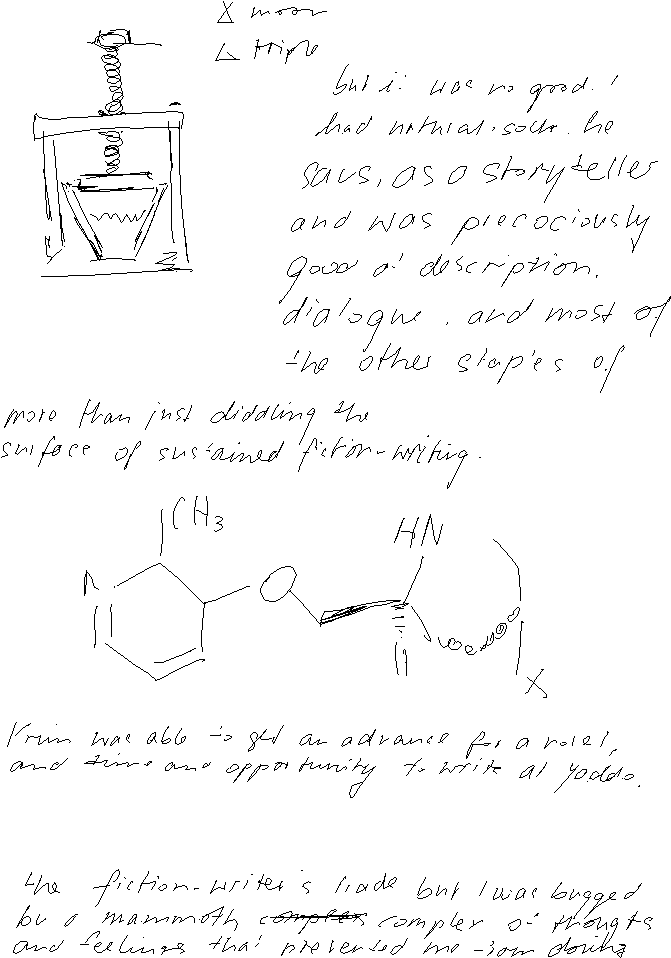 X moon
△ triple
but it was no good. I
had natural sock, he
says, as a storyteller
and was precociously
good at description,
dialogue, and most of
the other staples of
more than just diddling the
surface of sustained fiction-writing.
CH3
N
O
HN
H
X
Krim was able to get an advance for a novel,
and time and opportunity to write at Yaddo.
the fiction-writer's trade but I was bugged
by a mammoth complex complex of thougts
and feelings that prevented me from doing